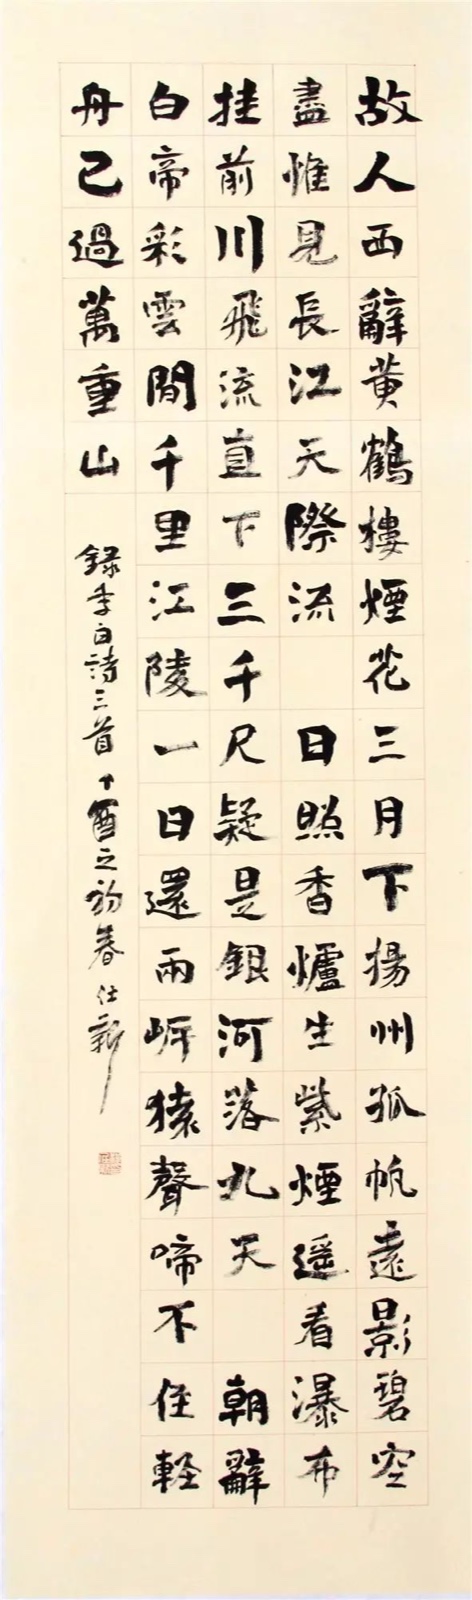 故人西辭黃鶴樓煙花三月下揚州孤帆遠影碧空
盡惟見長江天際流 日照香爐生紫煙遥看瀑布
挂前川飛流直下三千尺疑是銀河落九天 朝辭
白帝彩雲間千里江陵一日還兩岸猿聲啼不住軽
舟已過萬重山
錄李白詩三首 丁酉之初春 仕新